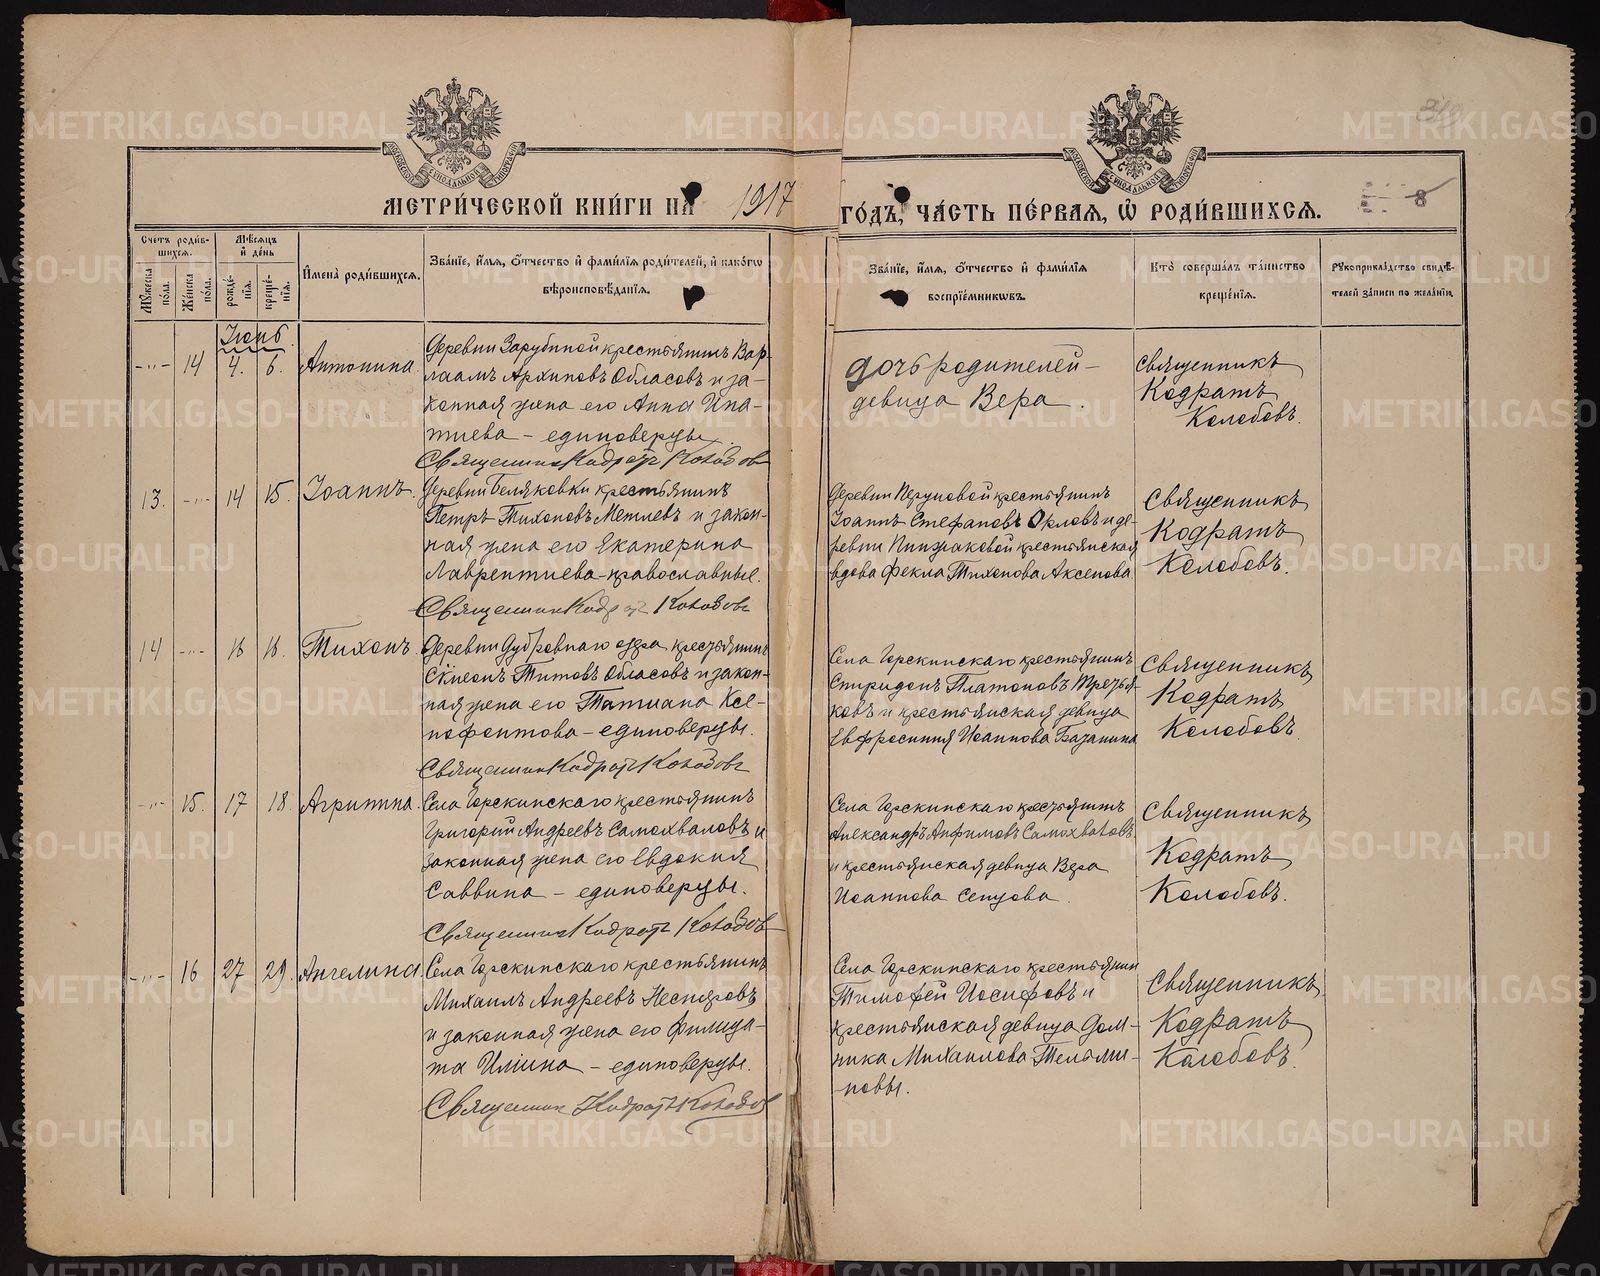 МЕТРИ́ЧЕСКОЙ КНИ́ГИ НА 1917 ГО́ДЪ, ЧА́СТЬ ПЕ́РВАЯ, Ѿ РОДИ́ВШИХСЯ.
8
Счетъ роди́в-
шихся.
Мѣ́сяцъ
и҆ де́нь
Мꙋ́жеска
пола.
Же́нска
пола.
рожде́-
нїя.
креще́-
нїя.
И҆мена̀ роди́вшихся.
Зва́нїе, и҆́мя, ѻ҆́тчество и҆ фами́лїя роди́телей, и҆ како́гѡ
вѣроисповѣ́данїя.
Зва́нїе, и҆́мя, ѻ҆́тчество и҆ фами́лїя
воспрїе́мникѡвъ.
Кто̀ соверша́лъ та́инство
креще́нїя.
Рꙋкоприкла́дство свидѣ́-
телей за́писи по жела́нїи.
Іюнь
-„- 14 4. 6. Антонина
Деревни Зарубиной крестьянинъ Вар-
лаамъ Архиповъ Обласовъ и за-
конная жена его Анна Ипа-
тиева – единоверцы.
Священник Кодратъ Колобов
дочь родителей –
девица Вера.
Священникъ
Кодратъ
Колобовъ.
13. -„- 14 15. Іоаннъ.
Деревни Беляковки крестьянинъ
Петръ Тихоновъ Метлевъ и закон-
ная жена его Екатерина
Лаврентиева – православные.
Священник Кодрат Колобовъ
Деревни Перуновой крестьянинъ
Іоаннъ Стефановъ Орловъ и де-
ревни крестьянская
вдова Фекла Тихонова Аксенова
Священникъ
Кодратъ
Колобовъ.
14 -„- 16 16. Тихонъ.
Деревни Дубровнаго озера крестьянинъ
Симеонъ Титовъ Обласовъ и закон-
ная жена его Татиана Ксе-
нофонтова – единоверцы.
Священник Кодратъ Колобовъ
Села Горскинскаго крестьянинъ
Спиридонъ Платоновъ Третья-
ковъ и крестьянская девица
Евфросиния Иоаннова Базанина
Священникъ
Кодратъ
Колобовъ
-„- 15. 17 18. Агрипина.
Села Горскинскаго крестьянинъ
Григорий Андреевъ Самохваловъ и
законная жена его Евдокия
Саввина – единоверцы.
Священник Кодратъ Колобовъ
Села Горскинскаго крестьянинъ
Александръ Анфимовъ Самохваловъ
и крестьянская девица Вера
Иоаннова.
Священникъ
Кодратъ
Колобовъ.
-„- 16 27 29. Ангелина.
Села Горскинскаго крестьянинъ
Михаилъ Андреевъ
и законная жена его Филица-
та Илиина – единоверцы.
Священник Кодратъ Колобов
Села Горскинскаго крестьянин
Тимофей Иосифовъ и
крестьянская девица Дом-
ника Михаилова Тельми-
новы.
Священникъ
Кодратъ
Колобовъ.
METRIKI.GASO-URAL.RU